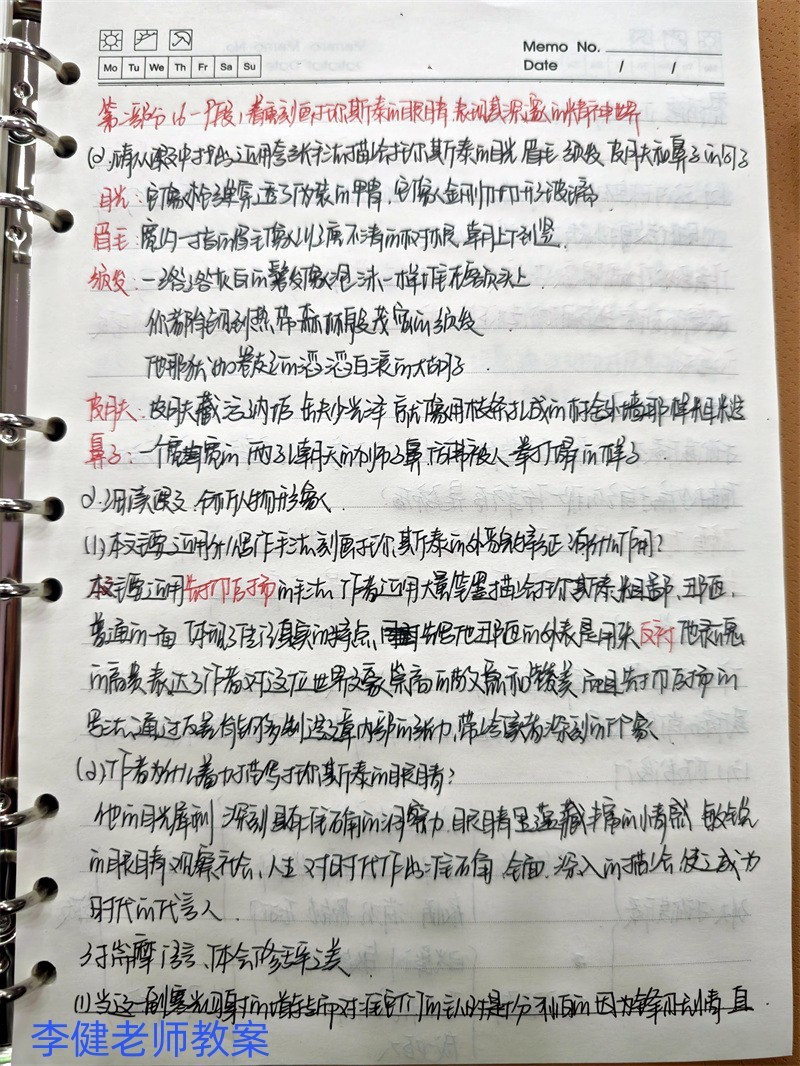 Memo No.
Mo Tu We Th Fr Sa Su
Date / /
第二部分(6-9段)着重刻画托尔斯泰的眼睛,表现其深邃的精神世界
(2)请从课文中找出运用夸张手法描绘托尔斯泰的目光 眉毛 须发 皮肤和鼻子的句子
目光:它像枪弹穿透了伪装的甲胄,它像金刚刀切开了玻璃
眉毛:宽约一指的眉毛像纠缠不清的树根,朝上倒竖.
须发:一绺绺灰白的鬈发像泡沫一样堆在额头上
你都能见到热带森林般茂密的须发
他那犹如卷起的滔滔白浪的大胡子
皮肤:皮肤藏污纳垢 缺少光泽 就像用枝条扎成的村舍外墙那样粗糙
鼻子:一个宽宽的 两孔朝天的狮子鼻,仿佛被人一拳打塌的样子
2.细读课文,分析人物形象
(1)本文主要运用什么写作手法刻画托尔斯泰的外貌特征?有什么作用?
本文主要运用先抑后扬的手法,作者运用大量笔墨描绘托尔斯泰粗鄙、丑陋,
普通的一面 体现了生活真实的特点,先写他丑陋的外表是用来反衬他灵魂
的高贵 表达了作者对这位世界文豪崇高的敬意和赞美 而且先抑后扬的
写法,通过反差有助于制造文章内部的张力,带给读者深刻的印象
(2)作者为什么着力描写托尔斯泰的眼睛?
他的目光犀利 深刻 具有准确的洞察力,眼睛里蕴藏丰富的情感 敏锐
的眼睛观察社会、人生 对时代作出准确、全面、深入的描绘,使之成为
时代的代言人.
3揣摩语言、体会修辞之美
(1)当这一副寒光四射的
李健老师教案